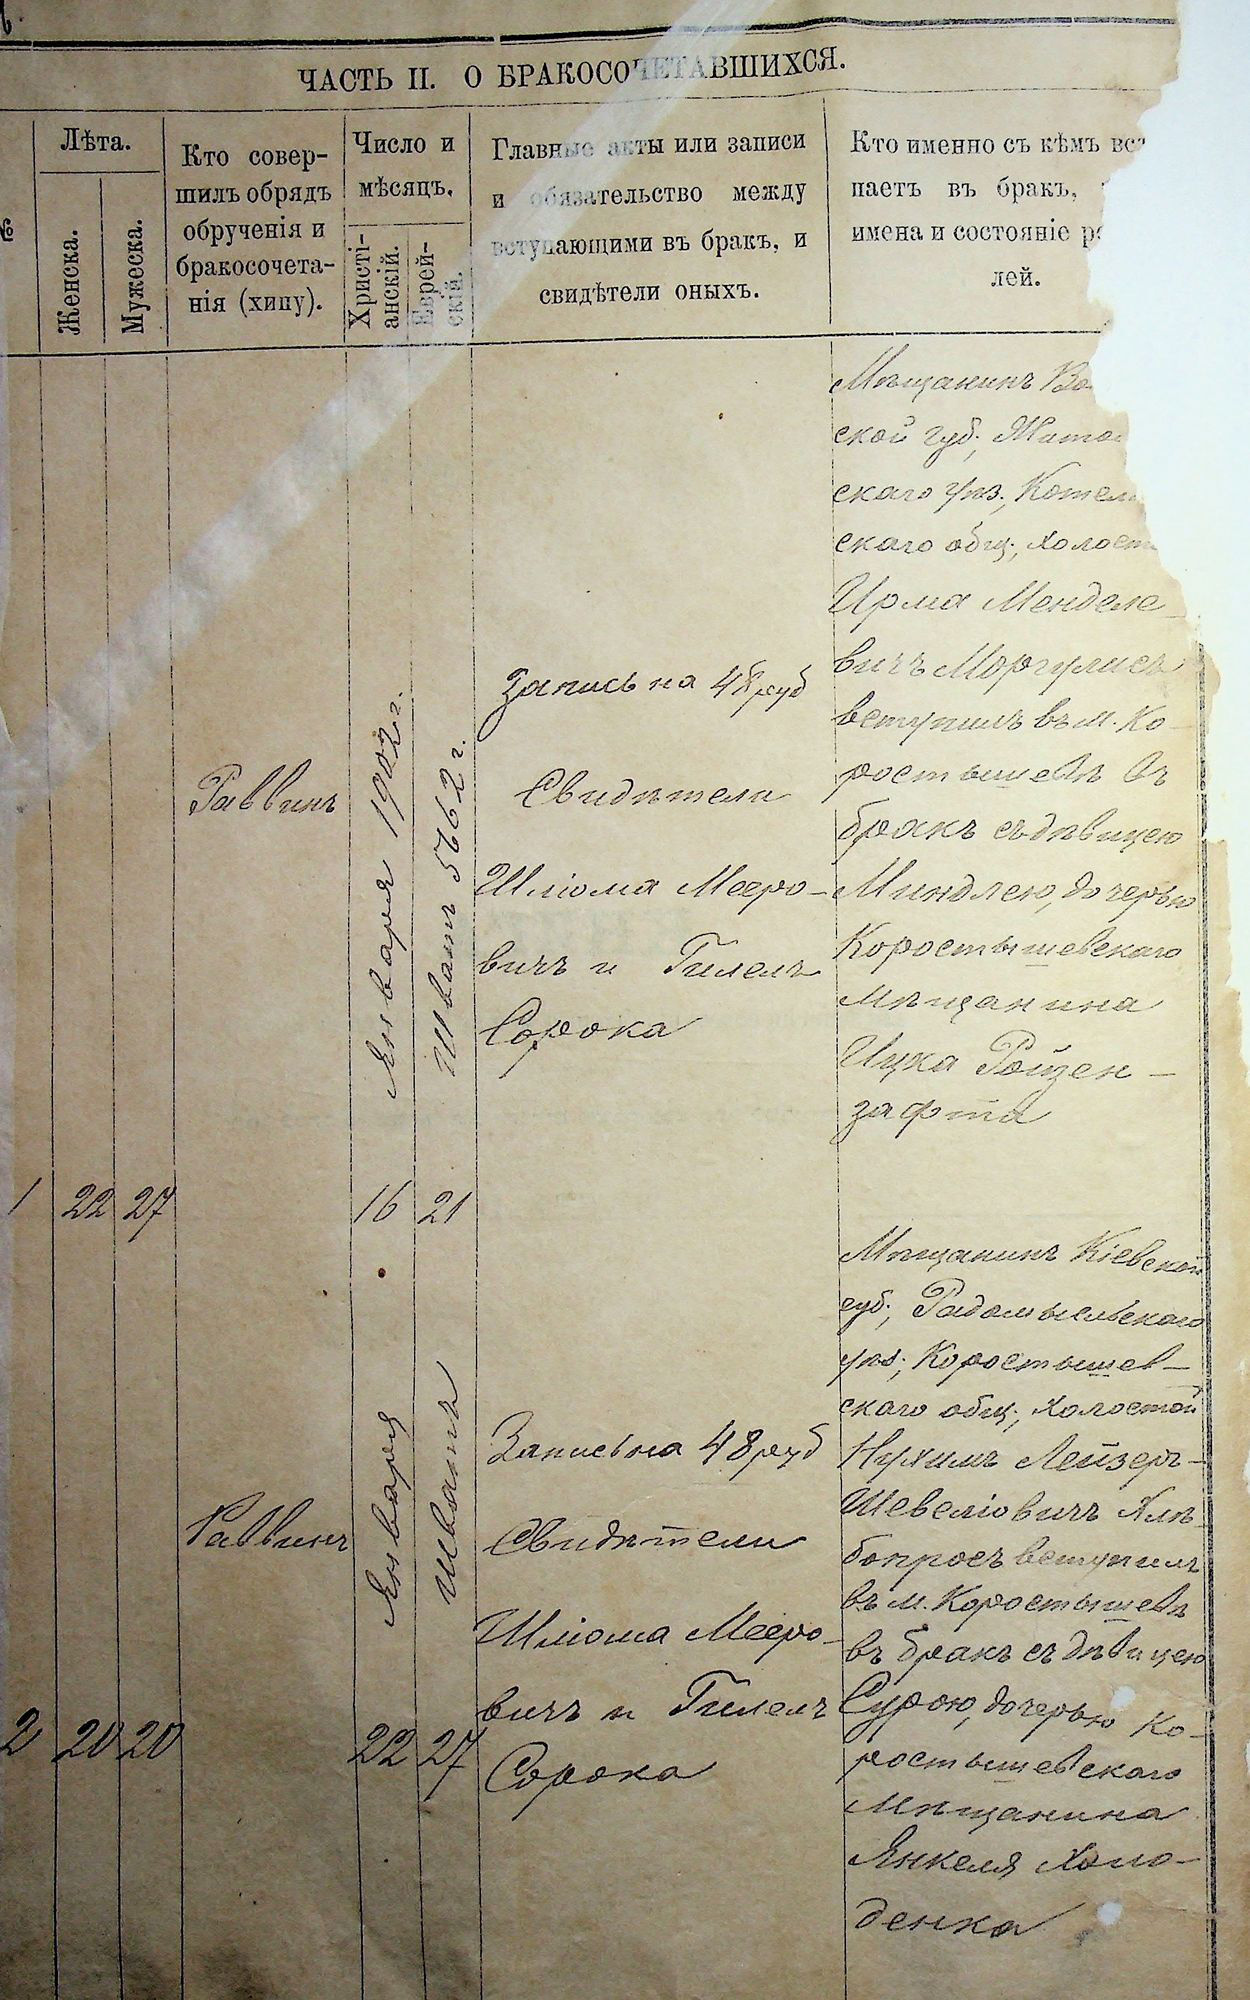 ЧАСТЬ II. О БРАКОСОЧЕТАВШИХСЯ.
№
Лѣта.
Женска.
Мужеска.
Кто совер-
шилъ обрядъ
обрученія и
бракосочета-
нія (хипу).
Число и
мѣсяцъ.
Христі-
анскій.
Еврей-
скій.
Главные акты или записи
и обязательство между
вступающими въ бракъ, и
свидѣтели оныхъ.
Кто именно съ кѣмъ вст
паетъ въ бракъ,
имена и состояніе ро
лей.
1
22
27
Раввинъ
Января 1902 г.
16
Шватъ 5662 г.
21
Запись на 48 руб
Свидѣтели
Шліома Мееро-
вичъ и Гилель
Сорока
Мѣщанинъ Во
ской губ., Жито
скаго уѣз., Котель
скаго общ., холост
Ирма Менделе-
вичъ Моргулисъ
вступилъ въ м. Ко-
ростышевѣ въ
бракъ съ дѣвицею
Миндлею, дочерью
Коростышевскаго
мѣщанина
Ицка Ройзен-
зафта
2
20
20
Раввинъ
Января
22
Шватъ
27
Запись на 48 руб
Свидѣтели
Шліома Мееро-
вичъ и Гилель
Сорока
Мѣщанинъ Кіевской
губ., Радомысльскаго
уѣз., Коростышев-
скаго общ., холостой
Нухимъ Лейзеръ-
Шевеліовичъ Хлѣ-
бопросъ вступилъ
въ м. Коростышевѣ
въ бракъ съ дѣвицею
Сурою, дочерью Ко-
ростышевскаго
мѣщанина
Янкеля Холо-
денка